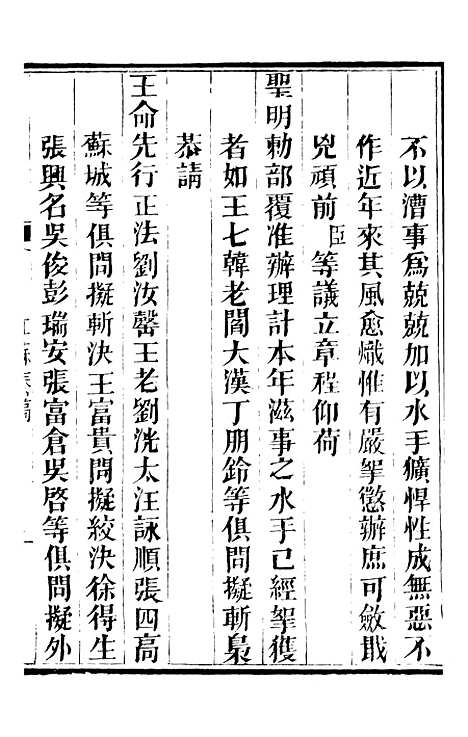 不以漕事爲兢兢加以水手獷悍性成無惡不
作近年來其風愈熾惟有嚴拏懲辦庶可斂戢
兇頑前臣等議立章程仰荷
聖明勅部覆准辦理計本年滋事之水手已經拏獲
者如王七韓老閻大漢丁朋鈴等俱問擬斬梟
恭請
王命先行正法劉汝罄王老劉洸太汪詠順張四高
蘇城等俱問擬斬決王富貴問擬絞決徐得生
張興名吳俊彭瑞安張富倉吳啓等俱問擬外